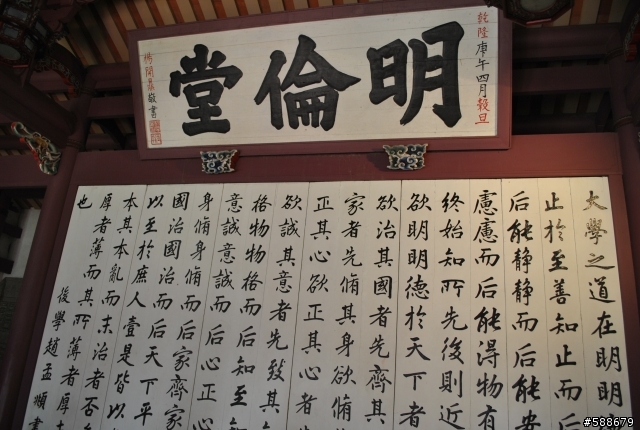 乾隆庚午四月穀旦
明倫堂
楊開鼎敬書
大學之道在明明
止於至善知止而后
后能静静而后能安
慮慮而后能得物有
終始知所先後則近
欲明明德於天下者
欲治其國者先齊其
家者先脩其身欲脩
正其心欲正其心者
欲誠其意者先致其
格物物格而后知至
意誠意誠而后心正
身脩身脩而后家齊家
國治國治而后天下平
以至於庶人壹是皆以
本其本亂而末治者否
厚者薄而其所薄者厚
也
後學趙孟頫書
#588679